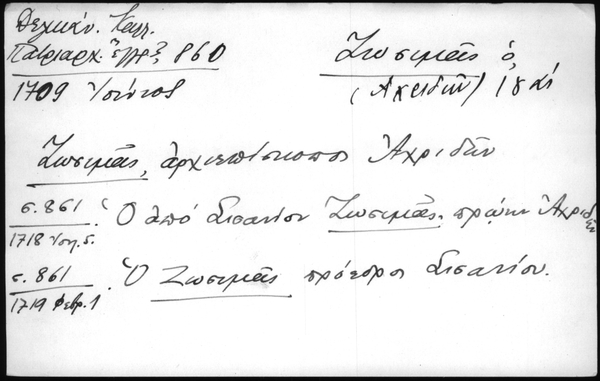 Δελικάν. Καλλ.
Πατριαρχ. Ἔγγρ. 860
1709 Ἰούνιος
Ζωσιμᾶς ὁ,
(Ἀχριδῶν) 18 αἰ
Ζωσιμᾶς, ἀρχιεπίσκοπος Ἀχριδῶν
σ. 861
1718 Νοη. 5.
Ὁ ἀπό Σισανίου Ζωσιμᾶς, πρώην Ἀχριδῶν
σ. 861
1719 Φεβρ. 1
Ὁ Ζωσιμᾶς πρόεδρος Σισανίου.